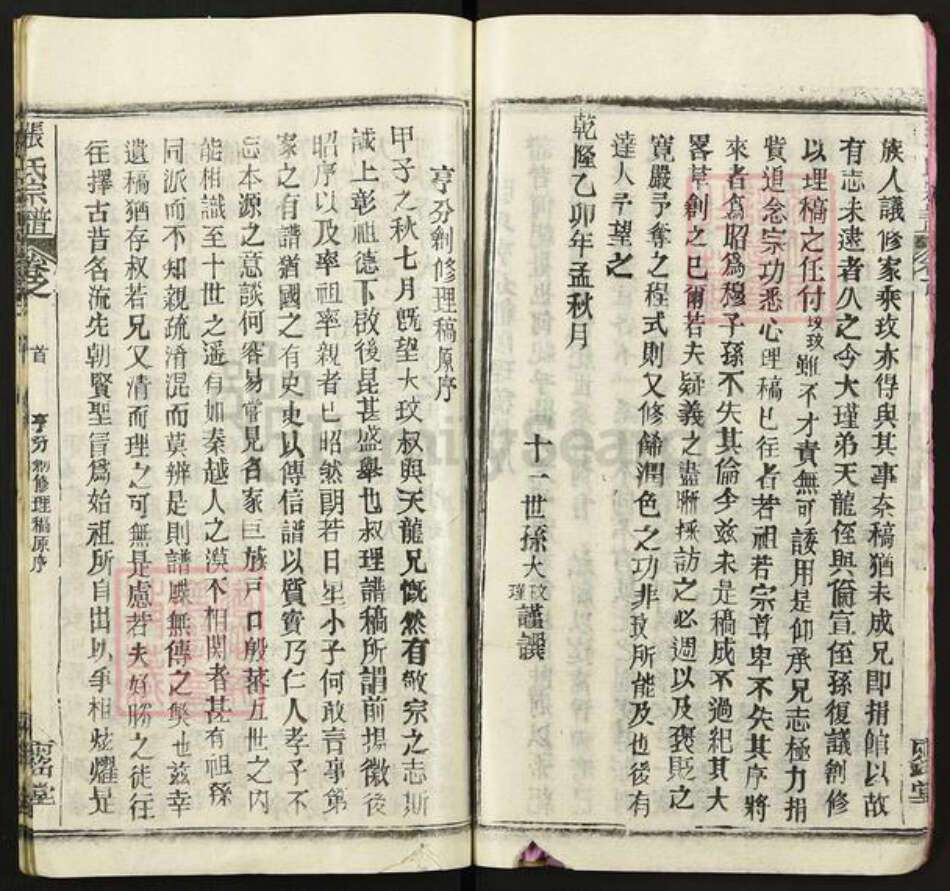 族人議修家乘玫亦得與其事奈稿猶未成兄即捐館以故
有志未逮者久之今大瑾弟天龍侄與倫宣侄孫復議創修
以理稿之任付玫玫雖不才責無可諉用是仰承兄志極力捐
貲追念宗功悉心理稿已往者若祖若宗尊卑不失其序將
來者為昭為穆子孫不失其倫今茲未是稿成不過紀其大
畧草創之已爾若夫疑義之盡晰採訪之必週以及褒貶之
寬嚴予奪之程式則又修飾潤色之功非玫所能及也後有
達人予望之
乾隆乙卯年孟秋月
十一世孫大玫瑾謹譔
亨分創修理稿原序
甲子之秋七月既望大玫叔與天龍兄慨然有敬宗之志斯
誠上彰祖德下啟後昆甚盛舉也叔理譜稿所謂前揚徽後
昭序以及率祖率親者已昭然朗若日星小子何敢言事第
家之有譜猶國之有史史以傳信譜以質實乃仁人孝子不
忘本源之意談何容易嘗見名家巨族戶口殷蕃五世之內
能相識至十世之遥有如秦越人之漠不相関者甚有祖孫
同派而不知親疏淆混而莫辨是則譜牒無傳之獘也茲幸
遺稿猶存叔若兄又清而理之可無是慮若夫好勝之徒往
往擇古昔名流先朝賢聖冒為始祖所自出以爭相炫燿是
張氏宗譜
卷之
首
亨分創修理稿原序
堂